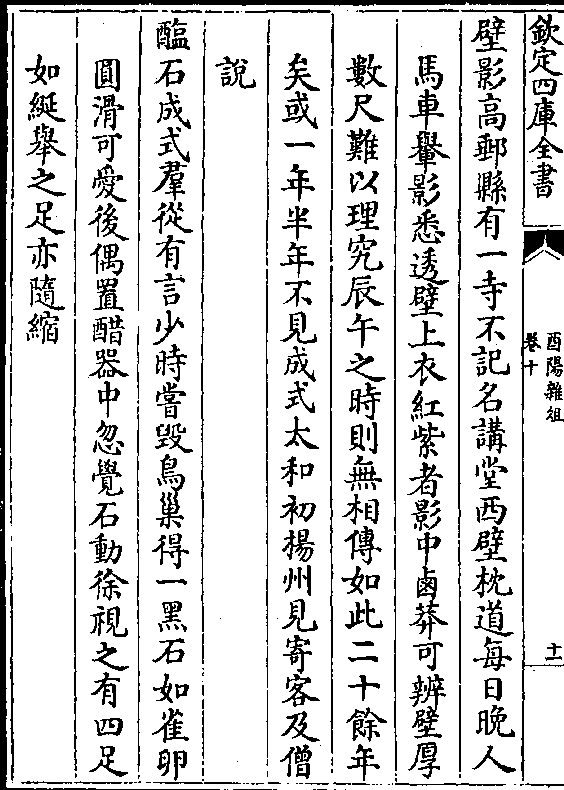 欽定四庫全書
酉陽雜俎
卷十
十一
壁影高郵縣有一寺不記名講堂西壁枕道每日晚人
馬車轝影悉透壁上衣紅紫者影中鹵莽可辨壁厚
數尺難以理究辰午之時則無相傳如此二十餘年
矣或一年半年不見成式太和初揚州見寄客及僧
說
醢石成式羣從有言少時嘗毀鳥巢得一黑石如雀卵
圓滑可愛後偶置醋器中忽覺石動徐視之有四足
如綖舉之足亦隨縮